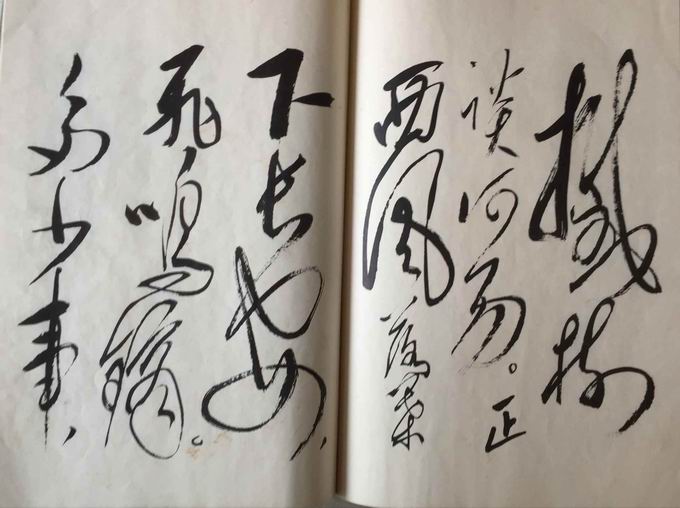 撼树
谈何易。正
西风落葉
下长安,
飞鸣镝。
多少事,